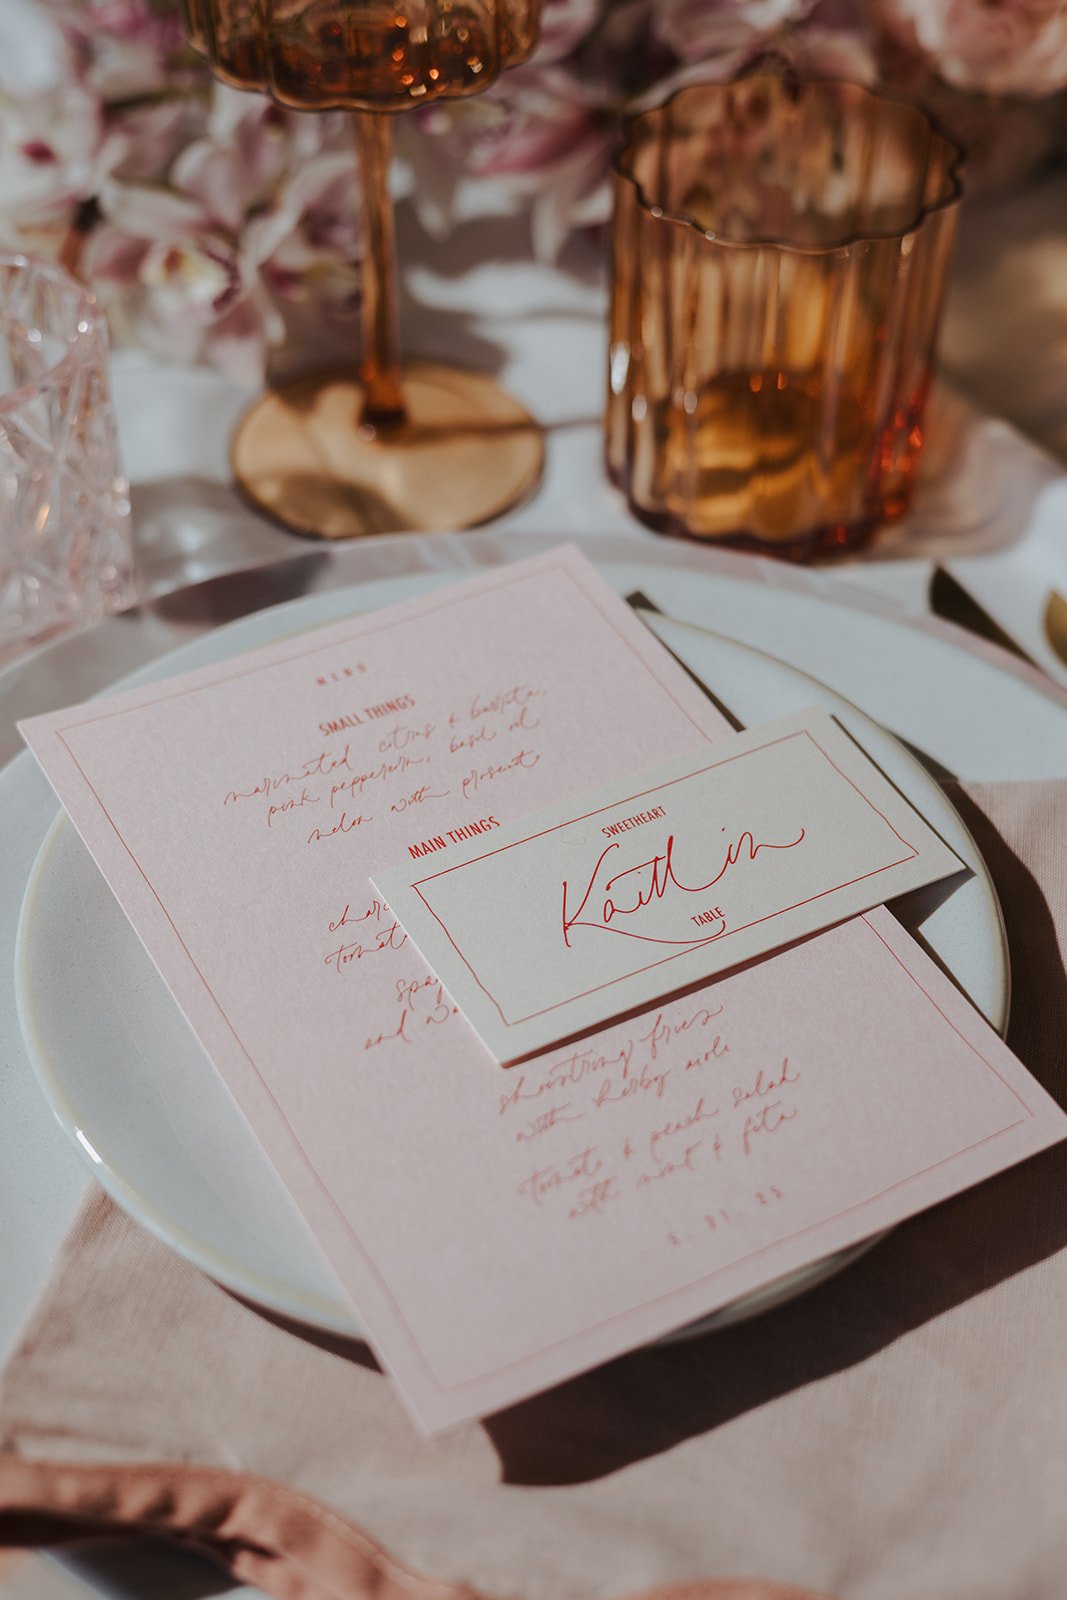 MENU
SMALL THINGS
marinated citrus & burrata,
pink peppercorn, basil oil
melon with prosciutto
MAIN THINGS
and
shoestring fries
with herby aioli
tomato & peach salad
with mint & feta
SWEETHEART
Kaitlin
TABLE